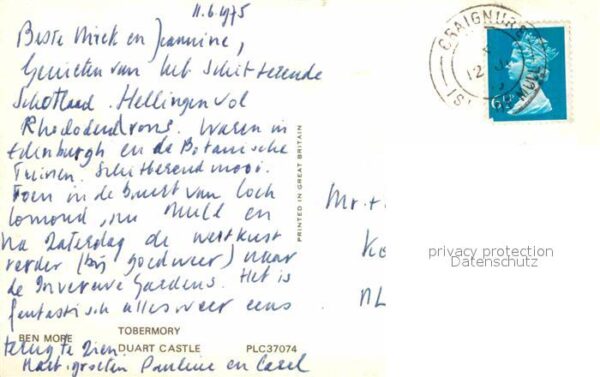 11.6.1975
Beste Mick en Jeannine,
Genieten van het schitterende
Schotland. Hellingen vol
Rhododendrons. Waren in
Edinburgh en de Botanische
Tuinen. Schitterend mooi.
Toen in de buurt van Loch
Lomond, nu Mull en
na zaterdag de westkust
verder (bij goed weer) naar
de Invereve Gardens. Het is
fantastisch alles weer eens
terug te zien.
Hart. groeten Pauline en Carel
BEN MORE
TOBERMORY
DUART CASTLE
PLC37074
PRINTED IN GREAT BRITAIN
CRAIGNURE
12
Mr +
Ko
NL
privacy protection
Datenschutz